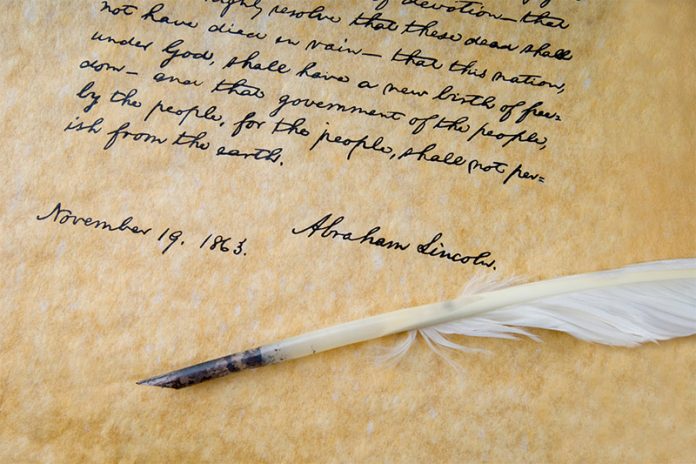 of devotion — that
highly resolve that these dead shall
not have died in vain — that this nation,
under God, shall have a new birth of free=
dom — and that government of the people,
by the people, for the people, shall not per=
ish from the earth.
November 19. 1863.
Abraham Lincoln.